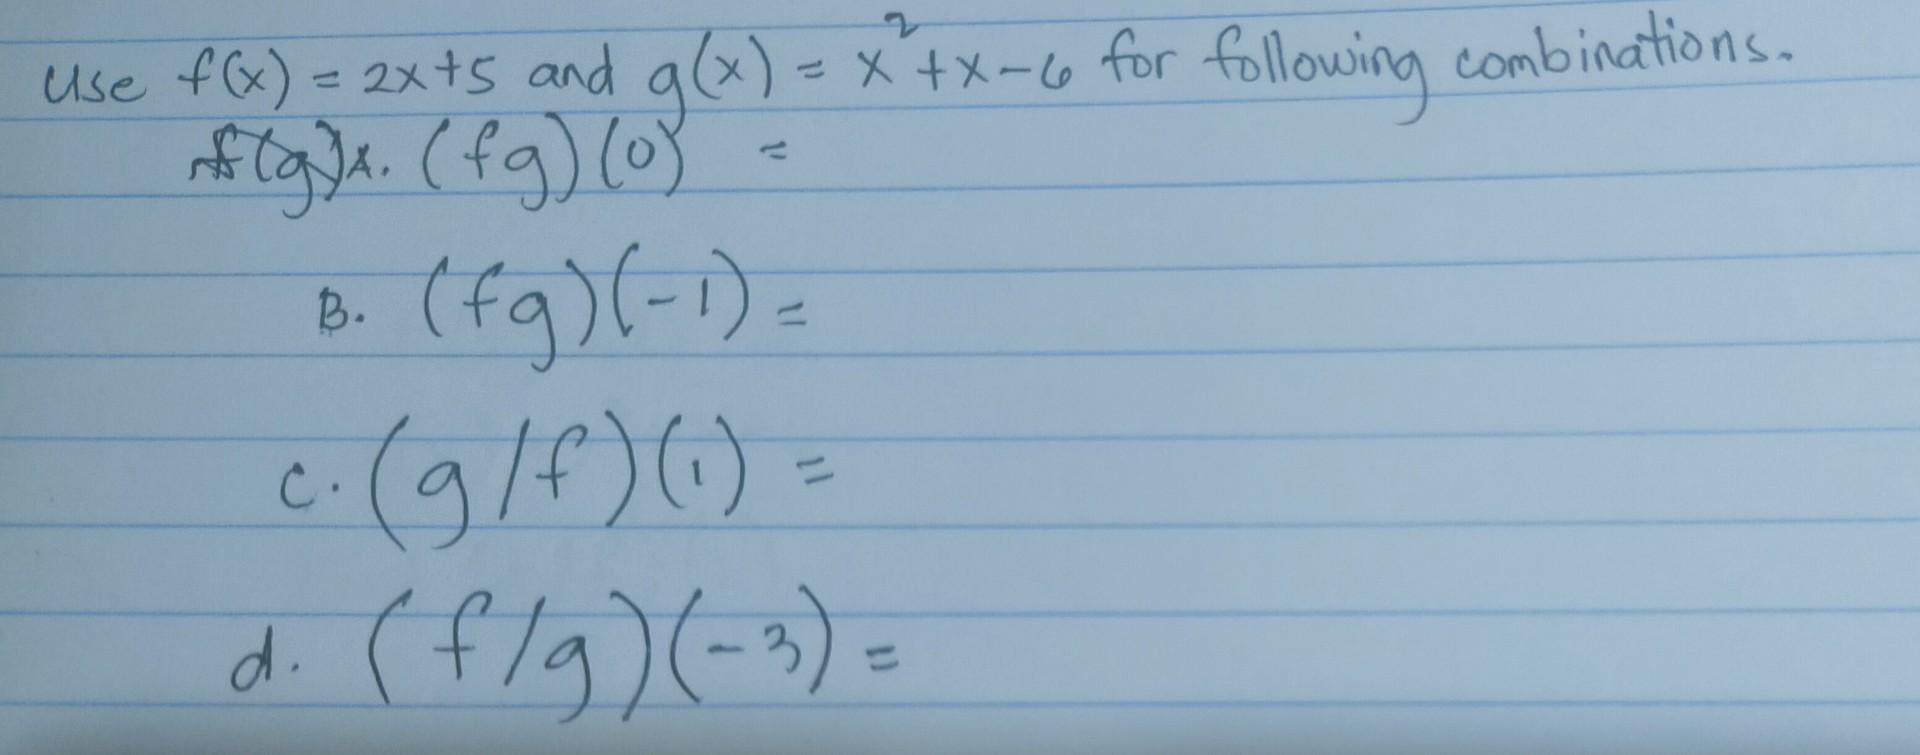 Use f(x) = 2x+5 and g(x) = x²+x-6 for following combinations.
A. (fg)(0) =
B. (fg)(-1) =
C. (g/f)(1) =
d. (f/g)(-3) =